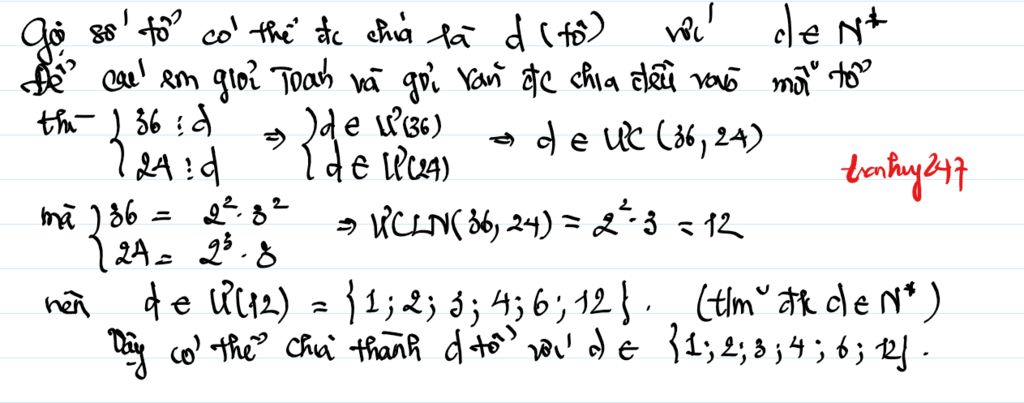 Gọi số tổ có thể đc chia là d (tổ) với d ∈ N*
Để các em giỏi Toán và giỏi Văn đc chia đều vào mỗi tổ
thì { 36 ⋮ d ; 24 ⋮ d ⇒ { d ∈ Ư(36) ; d ∈ Ư(24) ⇒ d ∈ ƯC (36, 24)
tranhuy247
mà { 36 = 2².3² ; 24 = 2³.3 ⇒ ƯCLN(36, 24) = 2².3 = 12
nên d ∈ Ư(12) = {1; 2; 3; 4; 6; 12}. (t/m đk d ∈ N*)
Vậy có thể chia thành d tổ với d ∈ {1; 2; 3; 4; 6; 12}.